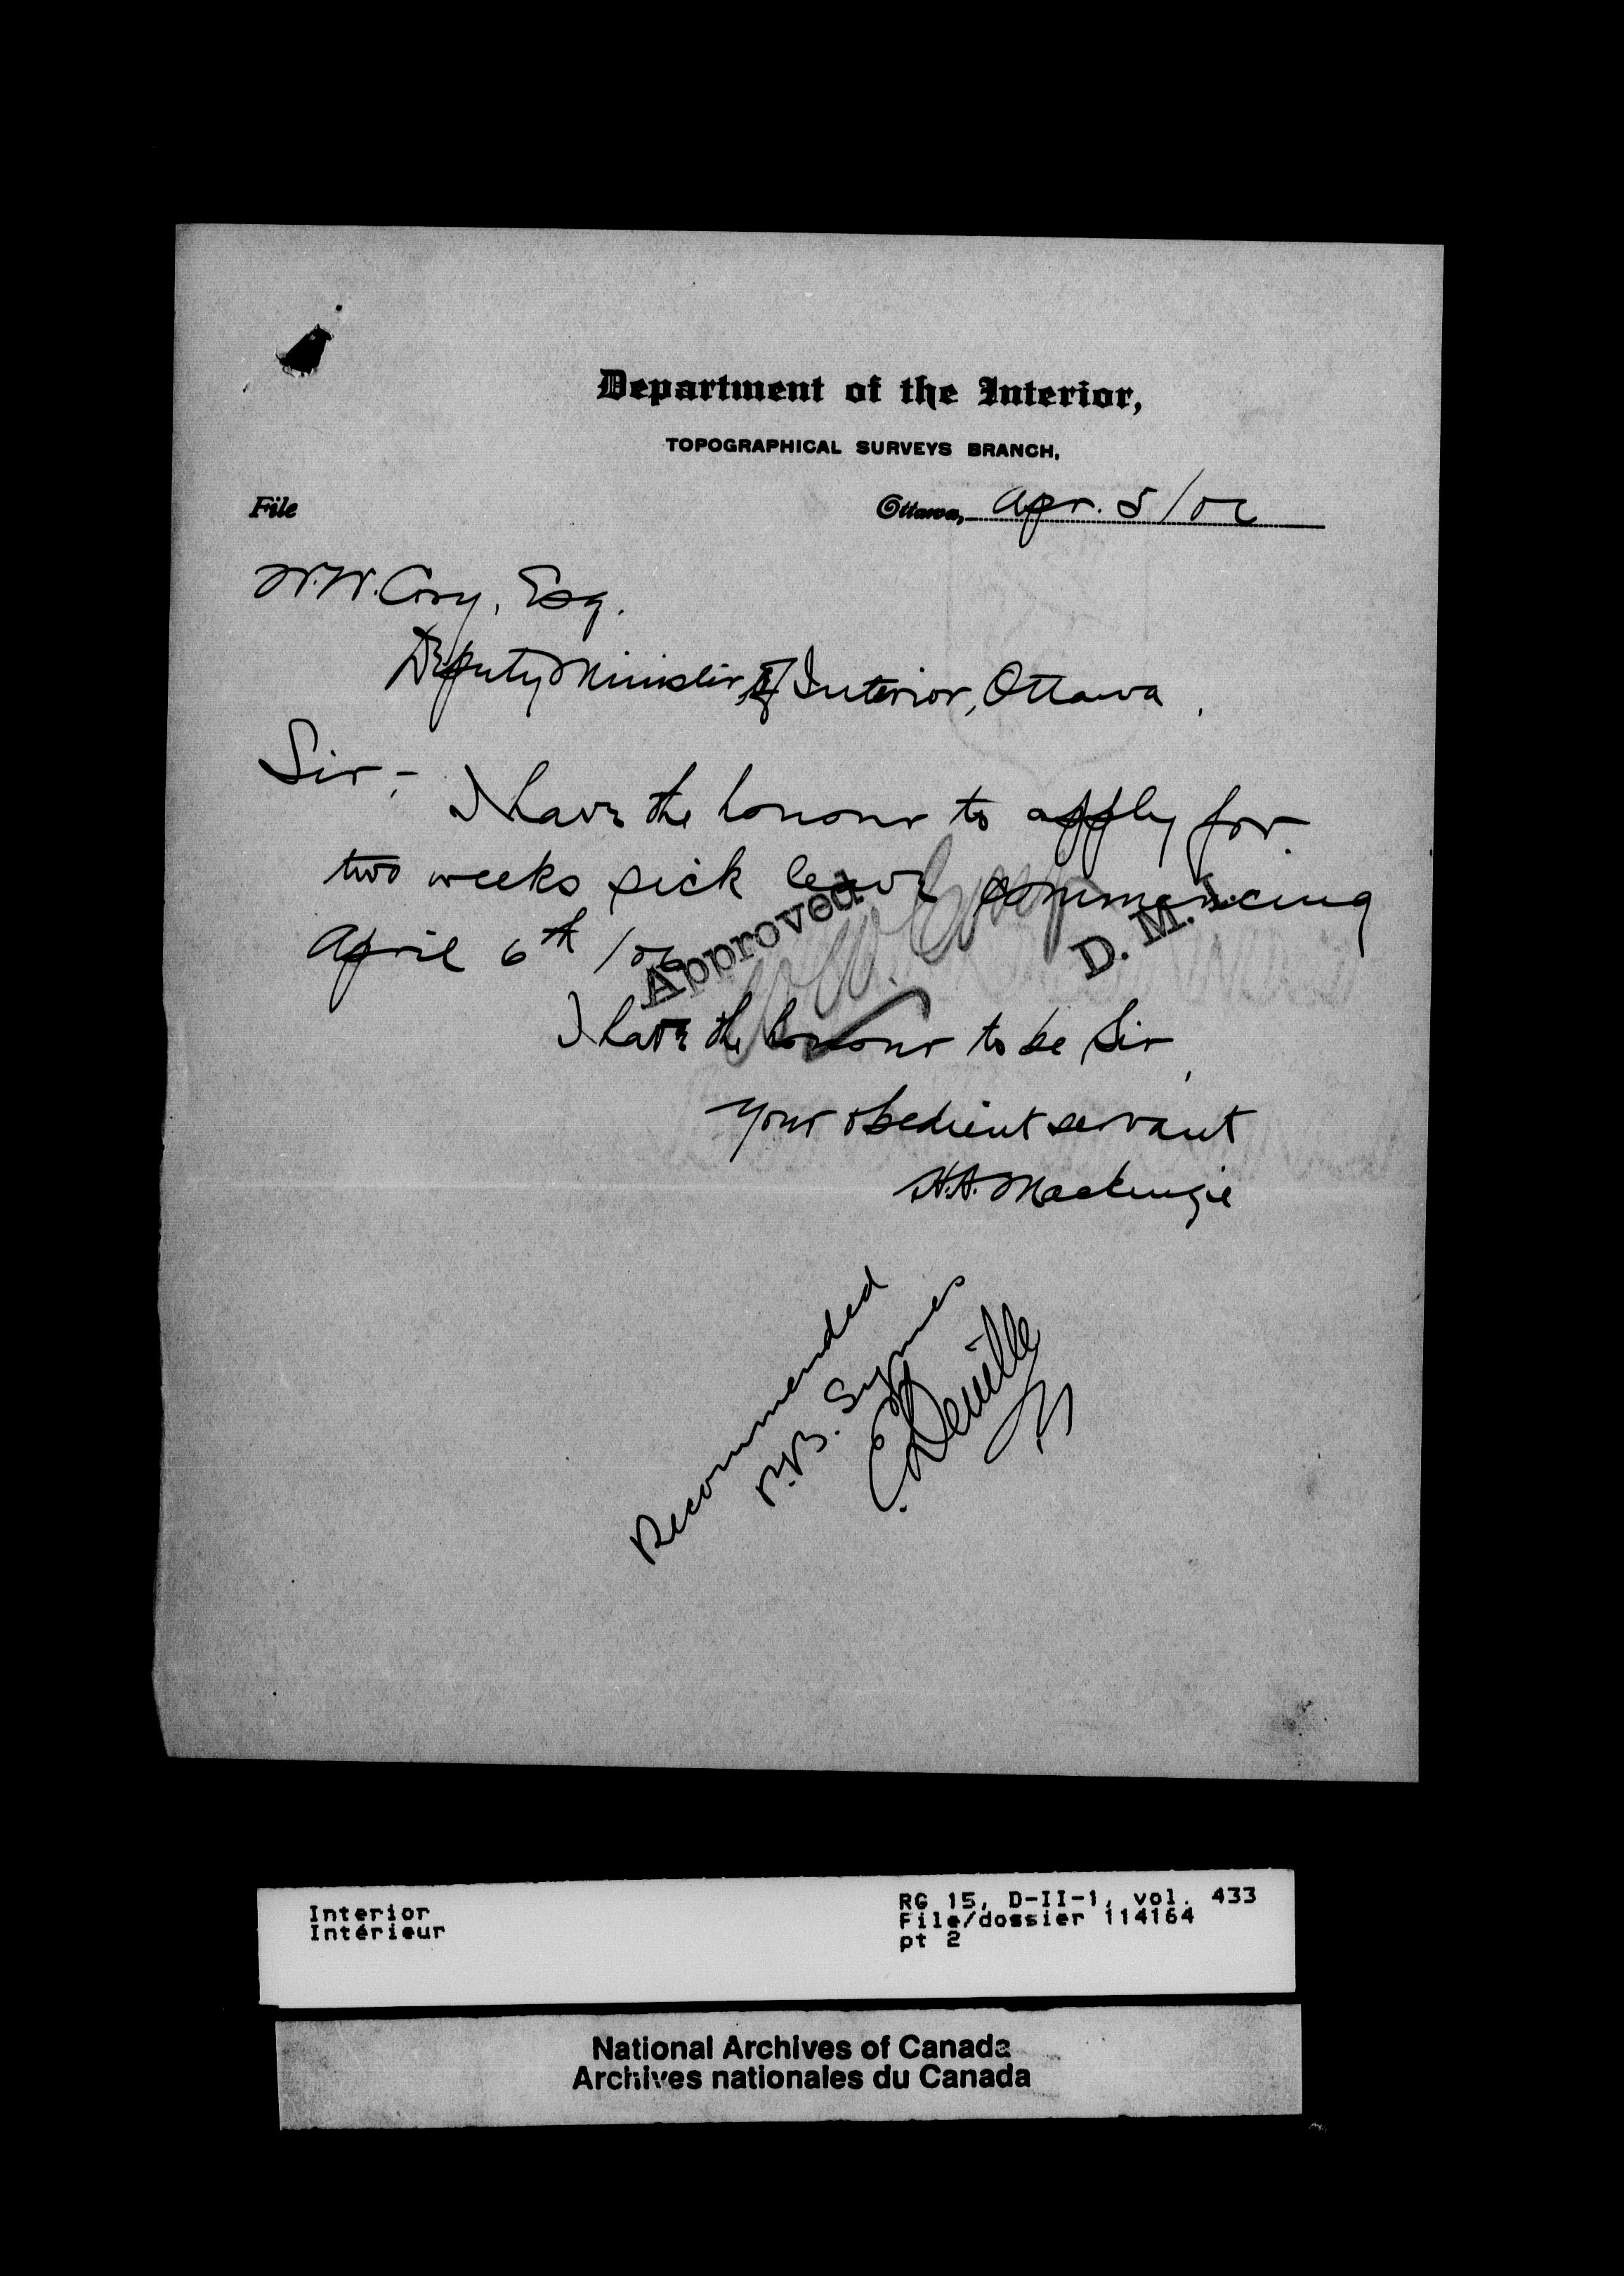 Department of the Interior,
TOPOGRAPHICAL SURVEYS BRANCH,
File
Ottawa, Apr. 5/06
W.W. Cory, Esq.
Deputy Minister of Interior, Ottawa.
Sir,-
I have the honour to apply for
two weeks sick leave commencing
April 6th /06
Approved W.W. Cory D. M. I.
I have the honour to be Sir,
Your obedient servant
H.A. Mackenzie
Recommended
P.B. Symes
E. Deville
Interior
Intérieur
RG 15, D-II-1, vol. 433
File/dossier 114164
pt 2
National Archives of Canada
Archives nationales du Canada